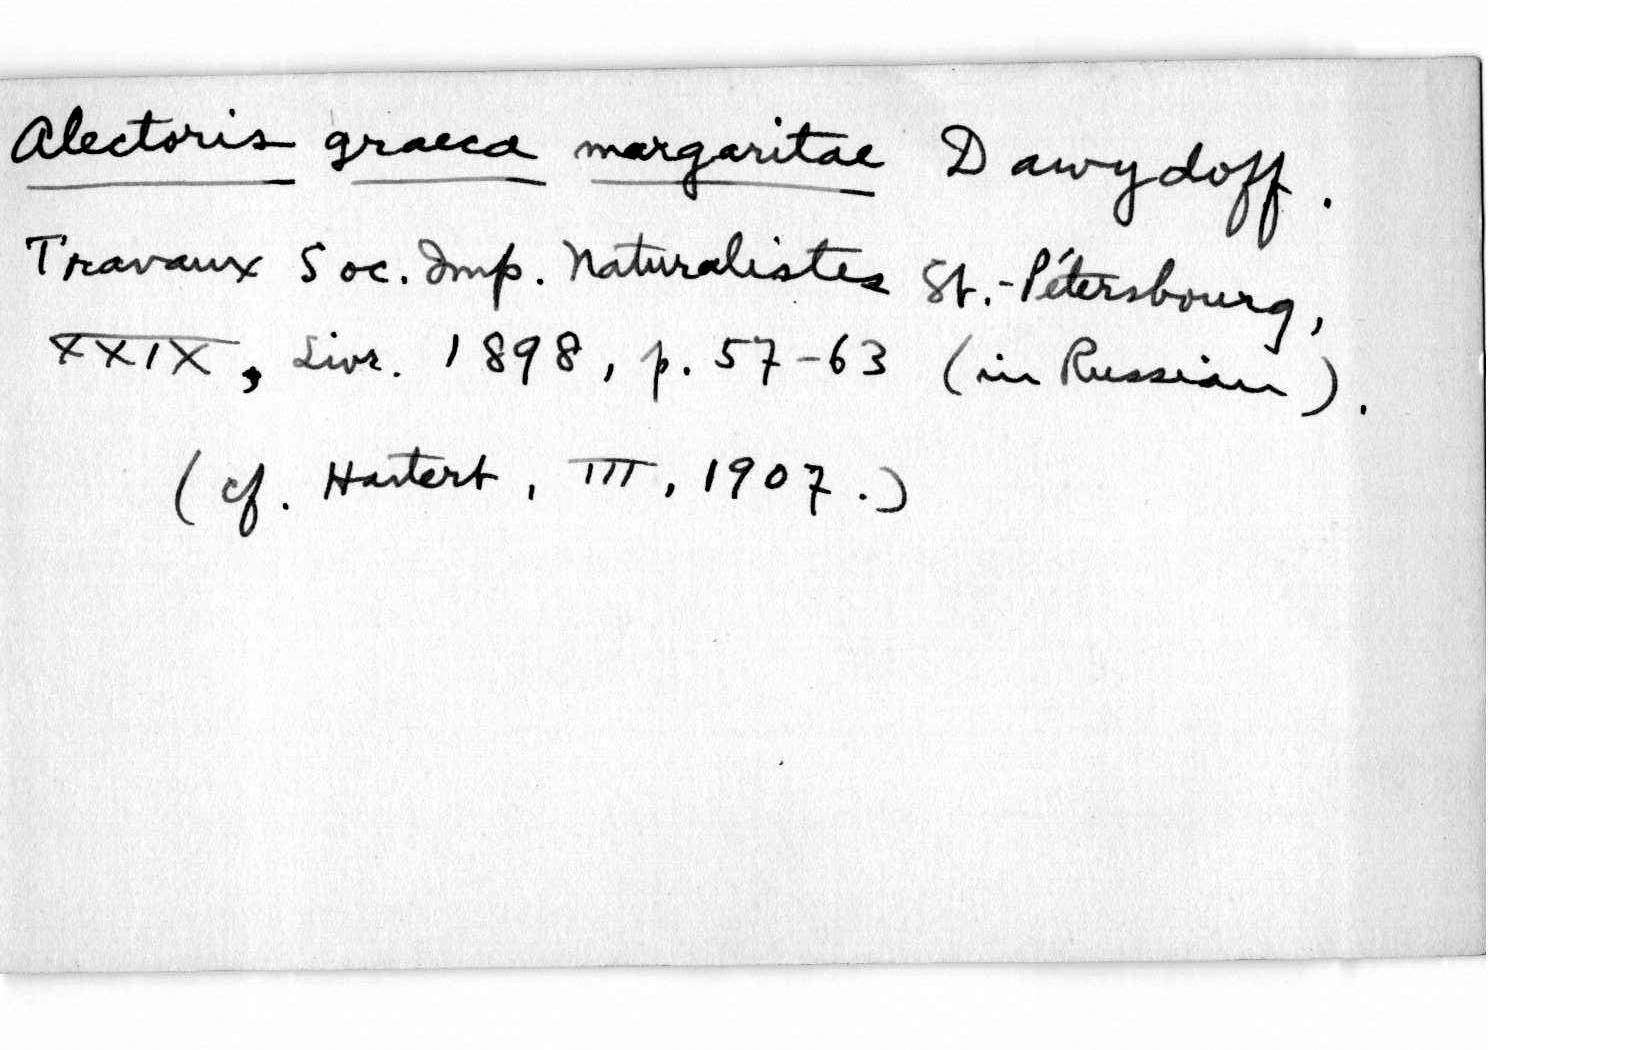 Alectoris graeca margaritae Dawydoff.
Travaux Soc. Imp. Naturalistes St.-Pétersbourg,
XXIX, Livr. 1898, p. 57-63 (in Russian).
(cf. Hartert, III, 1907.)